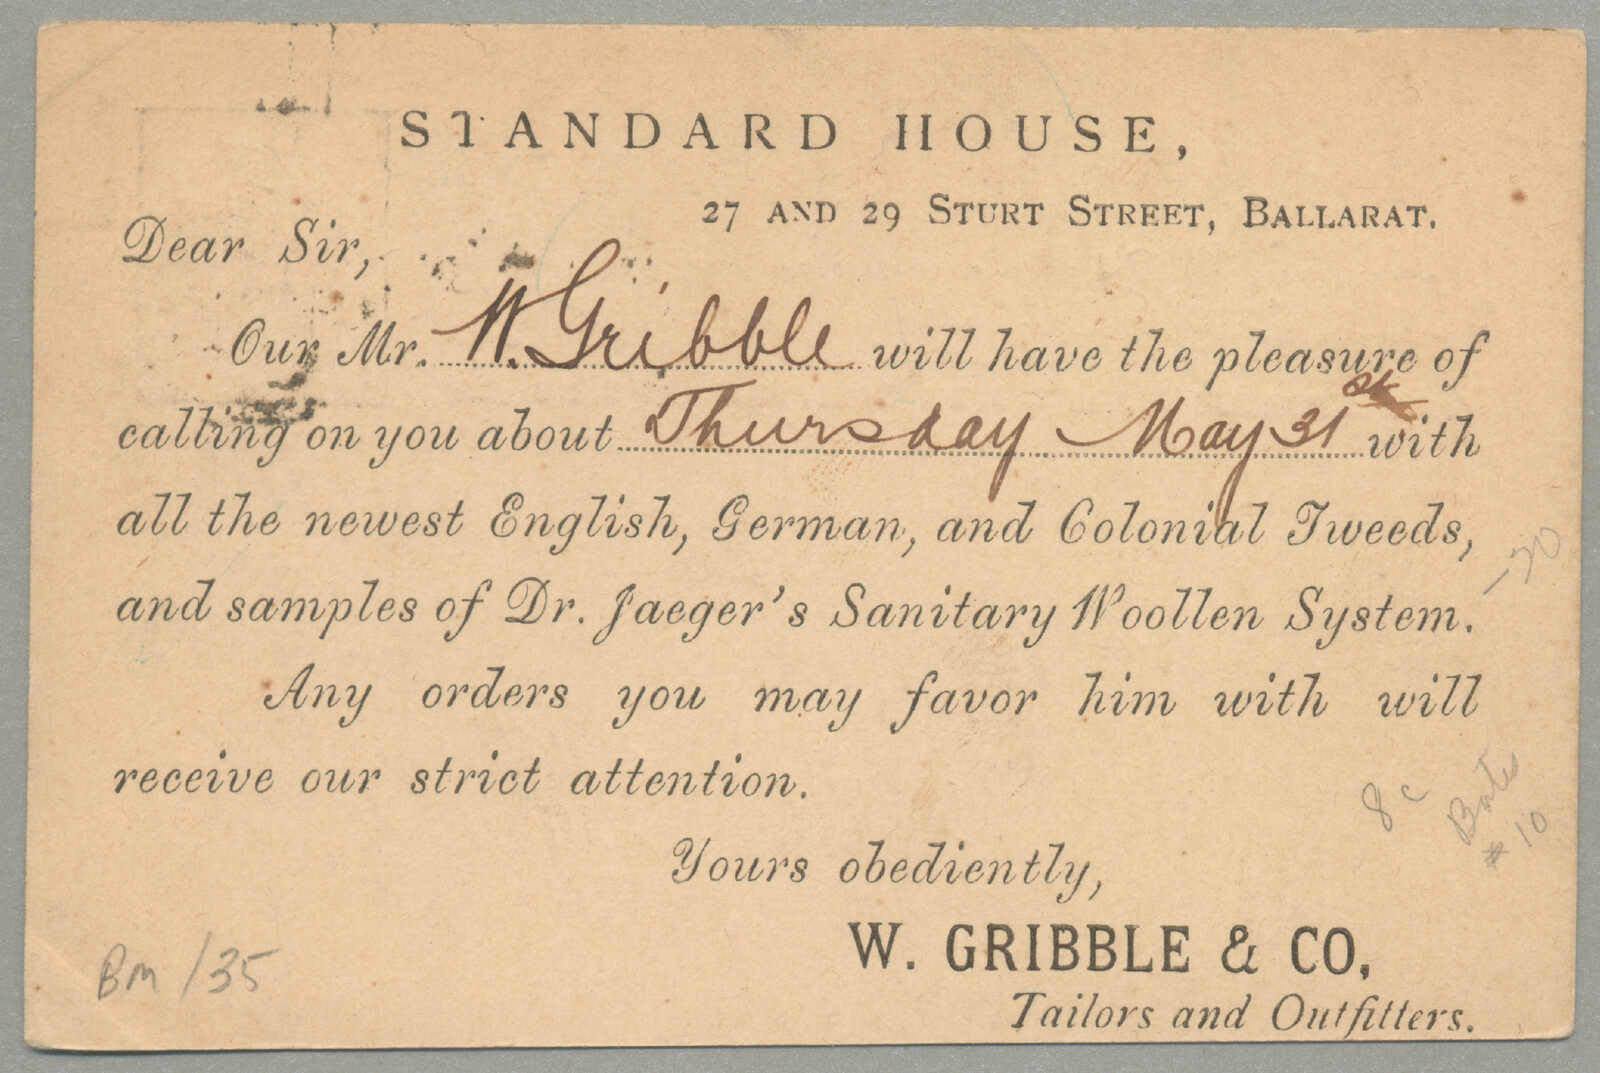 STANDARD HOUSE,
27 AND 29 STURT STREET, BALLARAT.
Dear Sir,
Our Mr. W. Gribble will have the pleasure of
calling on you about Thursday May 31 with
all the newest English, German, and Colonial Tweeds,
and samples of Dr. Jaeger's Sanitary Woollen System.
-30
Any orders you may favor him with will
receive our strict attention.
8c
Bates
#10
Yours obediently,
W. GRIBBLE & CO,
Tailors and Outfitters.
Bm /35